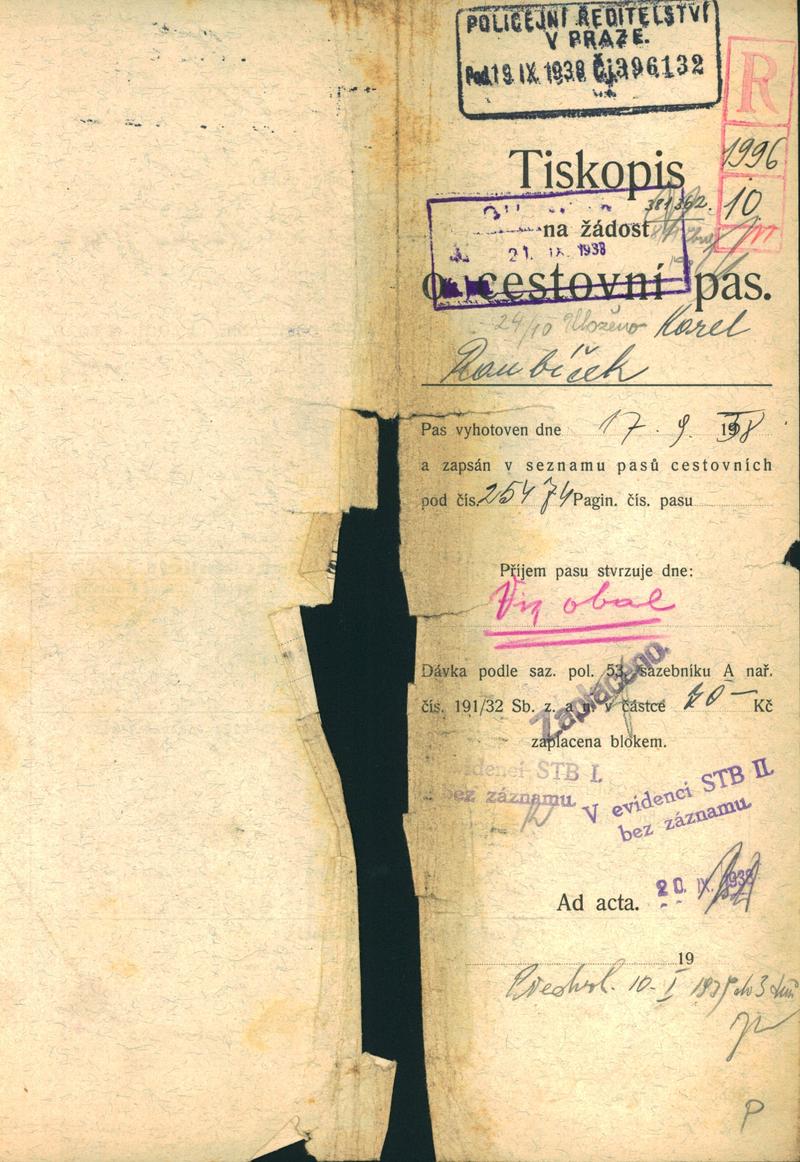 POLICEJNÍ ŘEDITELSTVÍ
V PRAZE.
Pod. 19 IX. 1938 Čj. 396132
R
1996
10
Tiskopis
381362.
na žádost
21. IX. 1938
o cestovní pas.
24/10 Uloženo Karel
Roubíček
Pas vyhotoven dne 17. 9. 1938
a zapsán v seznamu pasů cestovních
pod čís. 25474 Pagin. čís. pasu
Příjem pasu stvrzuje dne:
Viz obal
Dávka podle saz. pol. 53, sazebníku A nař.
čís. 191/32 Sb. z. a n. v částce 70 — Kč
Zaplaceno.
zaplacena blokem.
V evidenci STB I.
bez záznamu
V evidenci STB II.
bez záznamu
Ad acta. 20. IX. 1938
19
10. I 1939 do 3 dnů
P